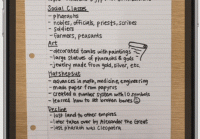 Social Classes
- pharaohs
- nobles, officials, priests, scribes
- soldiers
- farmers, peasants
Art
- decorated tombs with paintings
- large statues of pharaohs & gods
- jewelry made from gold, silver, etc.
Hatshepsut
- advances in math, medicine, engineering
- made paper from papyrus
- created a number system with 10 symbols
- learned how to set broken bones
Decline
- lost land to other empires
- later taken over by Alexander the Great
- last pharaoh was Cleopatra